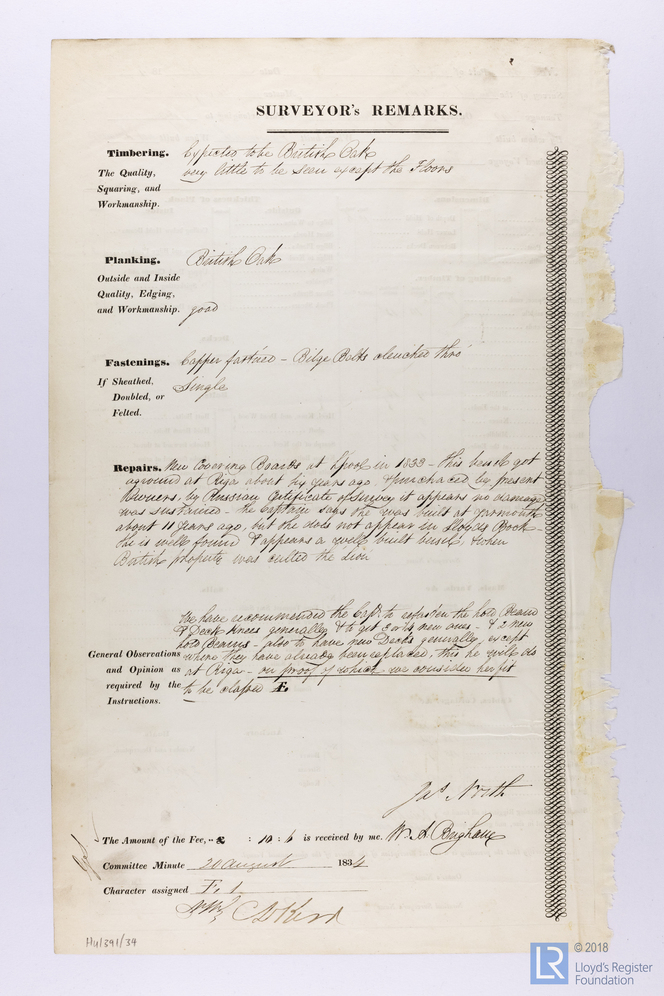 SURVEYOR's REMARKS.
Timbering. Expected to be British Oak
The Quality, very little to be seen except the Floors
Squaring, and
Workmanship.
Planking. British Oak
Outside and Inside
Quality, Edging,
and Workmanship. good
Fastenings. Copper fastened – Bilge Bolts clenched thro'
If Sheathed, Single
Doubled, or
Felted.
Repairs. New Covering Boards at Lpool in 1833 – this vessel got
aground at Riga about six years ago & purchased by present
Owners, by Russian Certificate of Survey it appears no damage
was sustained – the Captain says she was built at Yarmouth
about 11 years ago, but she does not appear in Lloyds Book –
she is well found & appears a well built vessel, & when
British property was called the Lion
We have recommended the Capt. to refasten the hold Beam
& Deck Knees generally & to put 3 or 4 new ones – & 2 new
hold Beams – also to have new Decks generally, except
General Observations where they have already been replaced, this he will do
and Opinion as at Riga – on proof of which we consider her fit
required by the to be classed Æ
Instructions.
Jas. North
The Amount of the Fee, £ : 10 : 6 is received by me, W. A. Brigham
Committee Minute 20 August 1834
Character assigned Æ 1
Hul391/34
LR
© 2018
Lloyd's Register
Foundation